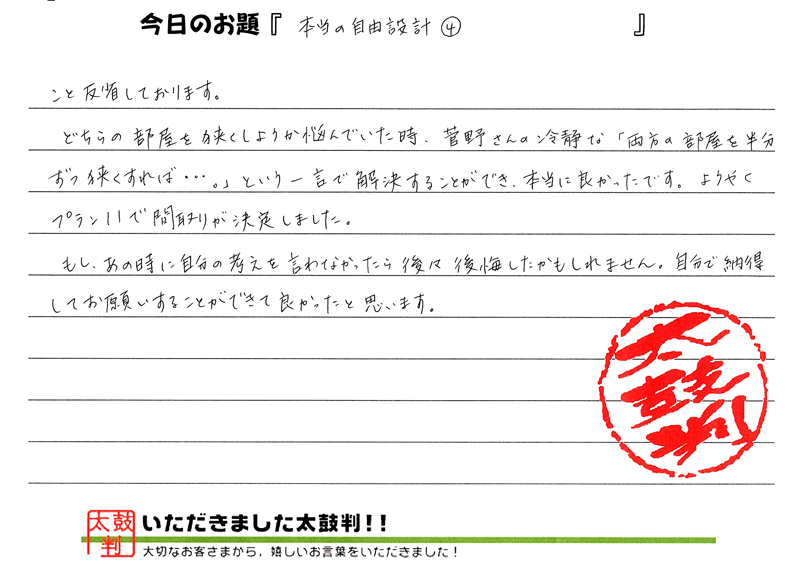 今日のお題『 本当の自由設計④ 』
こと反省しております。
どちらの部屋を狭くしようか悩んでいた時、菅野さんの冷静な「両方の部屋を半分
ずつ狭くすれば・・・。」という一言で解決することができ、本当に良かったです。ようやく
プラン11で間取りが決定しました。
もし、あの時に自分の考えを言わなかったら後々後悔したかもしれません。自分で納得
してお願いすることができて良かったと思います。
太鼓判
太鼓判
いただきました太鼓判!!
大切なお客さまから、嬉しいお言葉をいただきました!